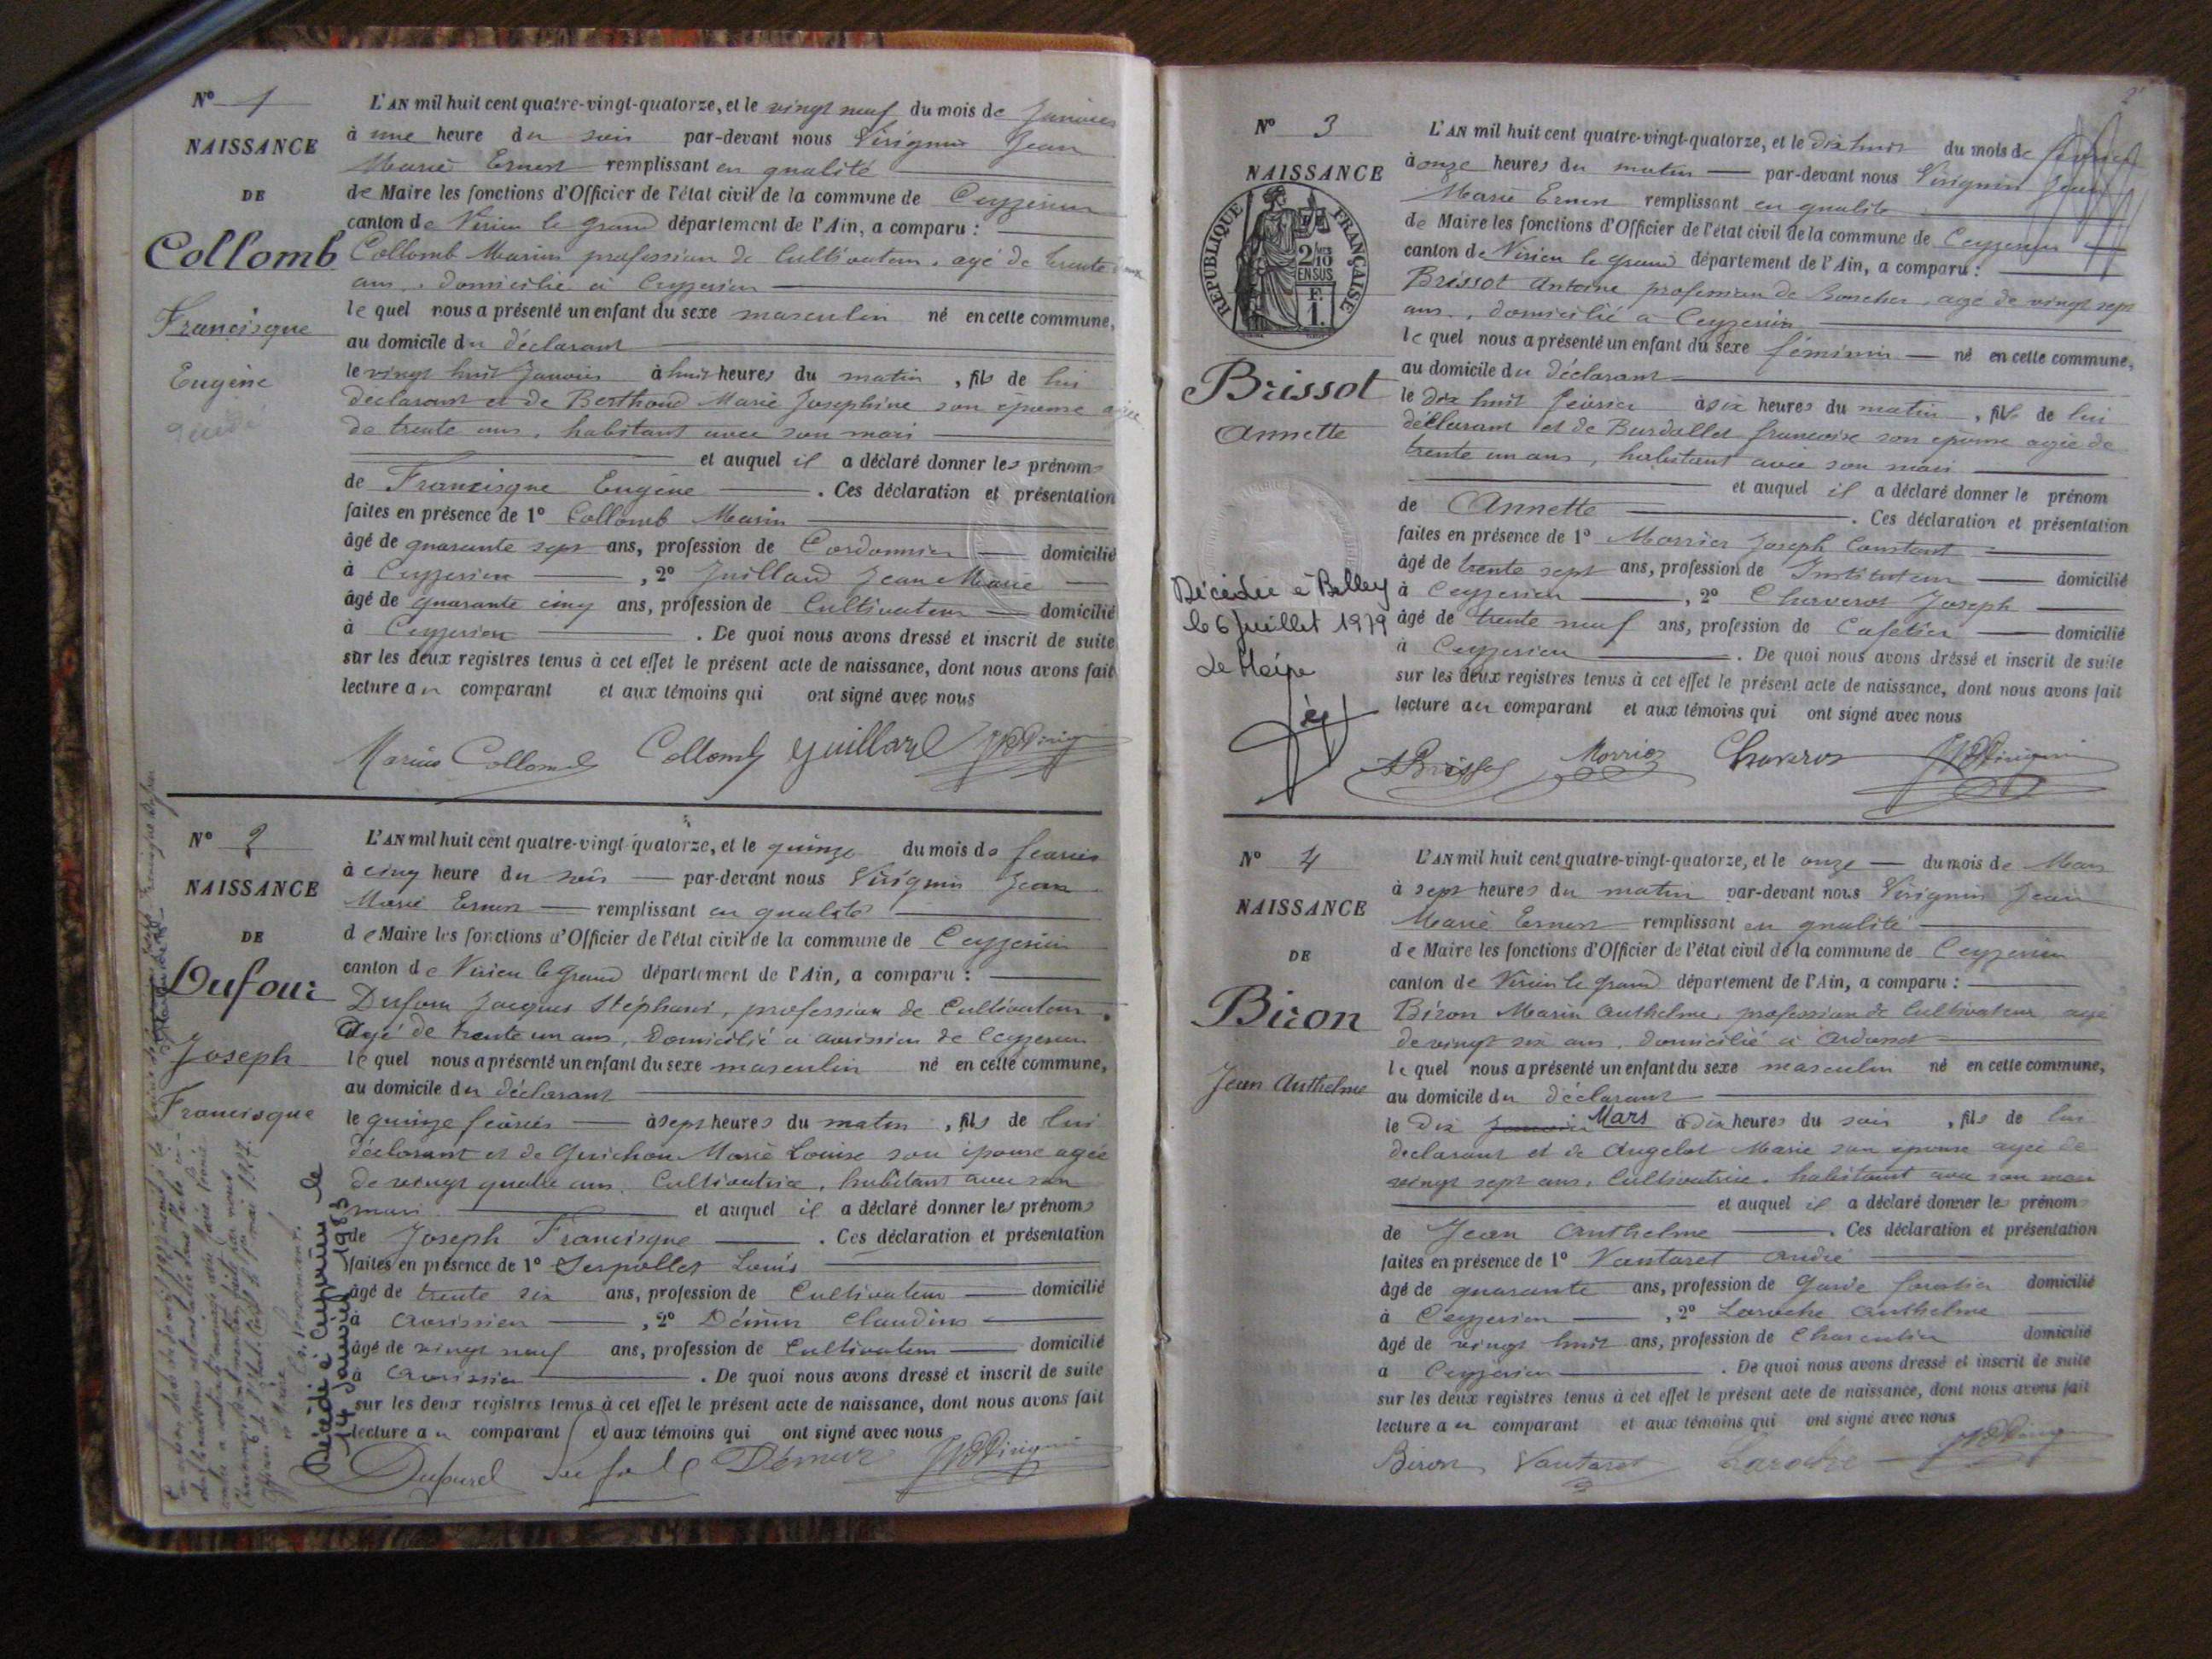 N° 1
NAISSANCE
DE
Collomb
Francisque
Eugène
L'AN mil huit cent quatre-vingt-quatorze, et le vingt neuf du mois de Janvier
à une heure du soir par-devant nous Virignin Jean
Marie Ernest remplissant en qualité
de Maire les fonctions d'Officier de l'état civil de la commune de Ceyzerieu
canton de Virieu le grand département de l'Ain, a comparu :
Collomb Marius profession de Cultivateur, agé de trente deux
ans, domicilié à Ceyzerieu
le quel nous a présenté un enfant du sexe masculin né en cette commune,
au domicile du déclarant
le vingt huit Janvier à huit heures du matin, fils de lui
déclarant et de Berthoud Marie Josephine son épouse agée
de trente ans, habitant avec son mari
et auquel il a déclaré donner les prénoms
de Francisque Eugène. Ces déclaration et présentation
faites en présence de 1° Collomb Marin
âgé de quarante sept ans, profession de Cordonnier domicilié
à Ceyzerieu, 2° Juillard Jean Marie
âgé de quarante cinq ans, profession de Cultivateur domicilié
à Ceyzerieu. De quoi nous avons dressé et inscrit de suite
sur les deux registres tenus à cet effet le présent acte de naissance, dont nous avons fait
lecture au comparant et aux témoins qui ont signé avec nous
Marius Collomb Collomb Juillard
N° 2
NAISSANCE
DE
Dufour
Joseph
Francisque
Décédé à Ceyzerieu le
14 Janvier 1983
L'AN mil huit cent quatre-vingt-quatorze, et le quinze du mois de fevrier
à cinq heure du soir par-devant nous Virignin Jean
Marie Ernest remplissant en qualité
de Maire les fonctions d'Officier de l'état civil de la commune de Ceyzerieu
canton de Virieu le grand département de l'Ain, a comparu :
Dufour Jacques Stéphane, profession de Cultivateur
Agé de trente un ans, Domicilié à avrissieu de Ceyzerieu
le quel nous a présenté un enfant du sexe masculin né en cette commune,
au domicile du déclarant
le quinze février à sept heures du matin, fils de lui
déclarant et de Guichon Marie Louise son épouse agée
de vingt quatre ans, Cultivatrice, habitant avec son
mari et auquel il a déclaré donner les prénoms
de Joseph Francisque. Ces déclaration et présentation
faites en présence de 1° Serpollet Louis
âgé de trente six ans, profession de Cultivateur domicilié
à Avrissieu, 2° Démur Claudius
âgé de vingt neuf ans, profession de Cultivateur domicilié
à Avrissieu. De quoi nous avons dressé et inscrit de suite
sur les deux registres tenus à cet effet le présent acte de naissance, dont nous avons fait
lecture au comparant et aux témoins qui ont signé avec nous
Démur
N° 3
NAISSANCE
REPUBLIQUE FRANÇAISE
2/10 EN SUS
Brissot
Annette
Décédée à Belley
le 6 Juillet 1979
Le Maire
L'AN mil huit cent quatre-vingt-quatorze, et le dix huit du mois de février
à onze heures du matin par-devant nous Virignin Jean
Marie Ernest remplissant en qualité
de Maire les fonctions d'Officier de l'état civil de la commune de Ceyzerieu
canton de Virieu le grand département de l'Ain, a comparu :
Brissot Antoine profession de Boucher, agé de vingt sept
ans, domicilié à Ceyzerieu
le quel nous a présenté un enfant du sexe féminin né en cette commune,
au domicile du déclarant
le dix huit février à six heures du matin, fille de lui
déclarant et de Burdallet francoise son épouse agée de
trente un ans, habitant avec son mari
et auquel il a déclaré donner le prénom
de Annette. Ces déclaration et présentation
faites en présence de 1° Morrier Joseph Constant
âgé de trente sept ans, profession de Instituteur domicilié
à Ceyzerieu, 2° Charveros Joseph
âgé de trente neuf ans, profession de Cafetier domicilié
à Ceyzerieu. De quoi nous avons dressé et inscrit de suite
sur les deux registres tenus à cet effet le présent acte de naissance, dont nous avons fait
lecture au comparant et aux témoins qui ont signé avec nous
ABrissot Morrier
N° 4
NAISSANCE
DE
Biron
Jean Anthelme
L'AN mil huit cent quatre-vingt-quatorze, et le onze du mois de Mars
à sept heures du matin par-devant nous Virignin Jean
Marie Ernest remplissant en qualité
de Maire les fonctions d'Officier de l'état civil de la commune de Ceyzerieu
canton de Virieu le grand département de l'Ain, a comparu :
Biron Marin Anthelme, profession de Cultivateur agé
de vingt six ans, domicilié à Ardosset
le quel nous a présenté un enfant du sexe masculin né en cette commune,
au domicile du déclarant
le Dix Janvier Mars à dix heures du soir, fils de lui
déclarant et de Angelot Marie son épouse agée de
vingt sept ans, Cultivatrice, habitant avec son mari
et auquel il a déclaré donner les prénom
de Jean Anthelme. Ces déclaration et présentation
faites en présence de 1° Vantaret André
âgé de quarante ans, profession de Garde forestier domicilié
à Ceyzerieu, 2° Laroche Anthelme
âgé de vingt huit ans, profession de Charcutier domicilié
à Ceyzerieu. De quoi nous avons dressé et inscrit de suite
sur les deux registres tenus à cet effet le présent acte de naissance, dont nous avons fait
lecture au comparant et aux témoins qui ont signé avec nous
Biron Vantaret Laroche